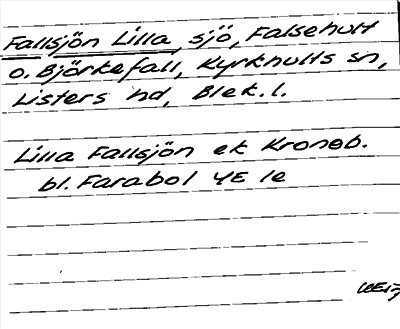 Fallsjön Lilla, sjö, Falsehult
o. Björkefall, Kyrkhults sn,
Listers hd, Blek. l.
Lilla Fallsjön ek Kronob.
bl. Farabol 4E 1e